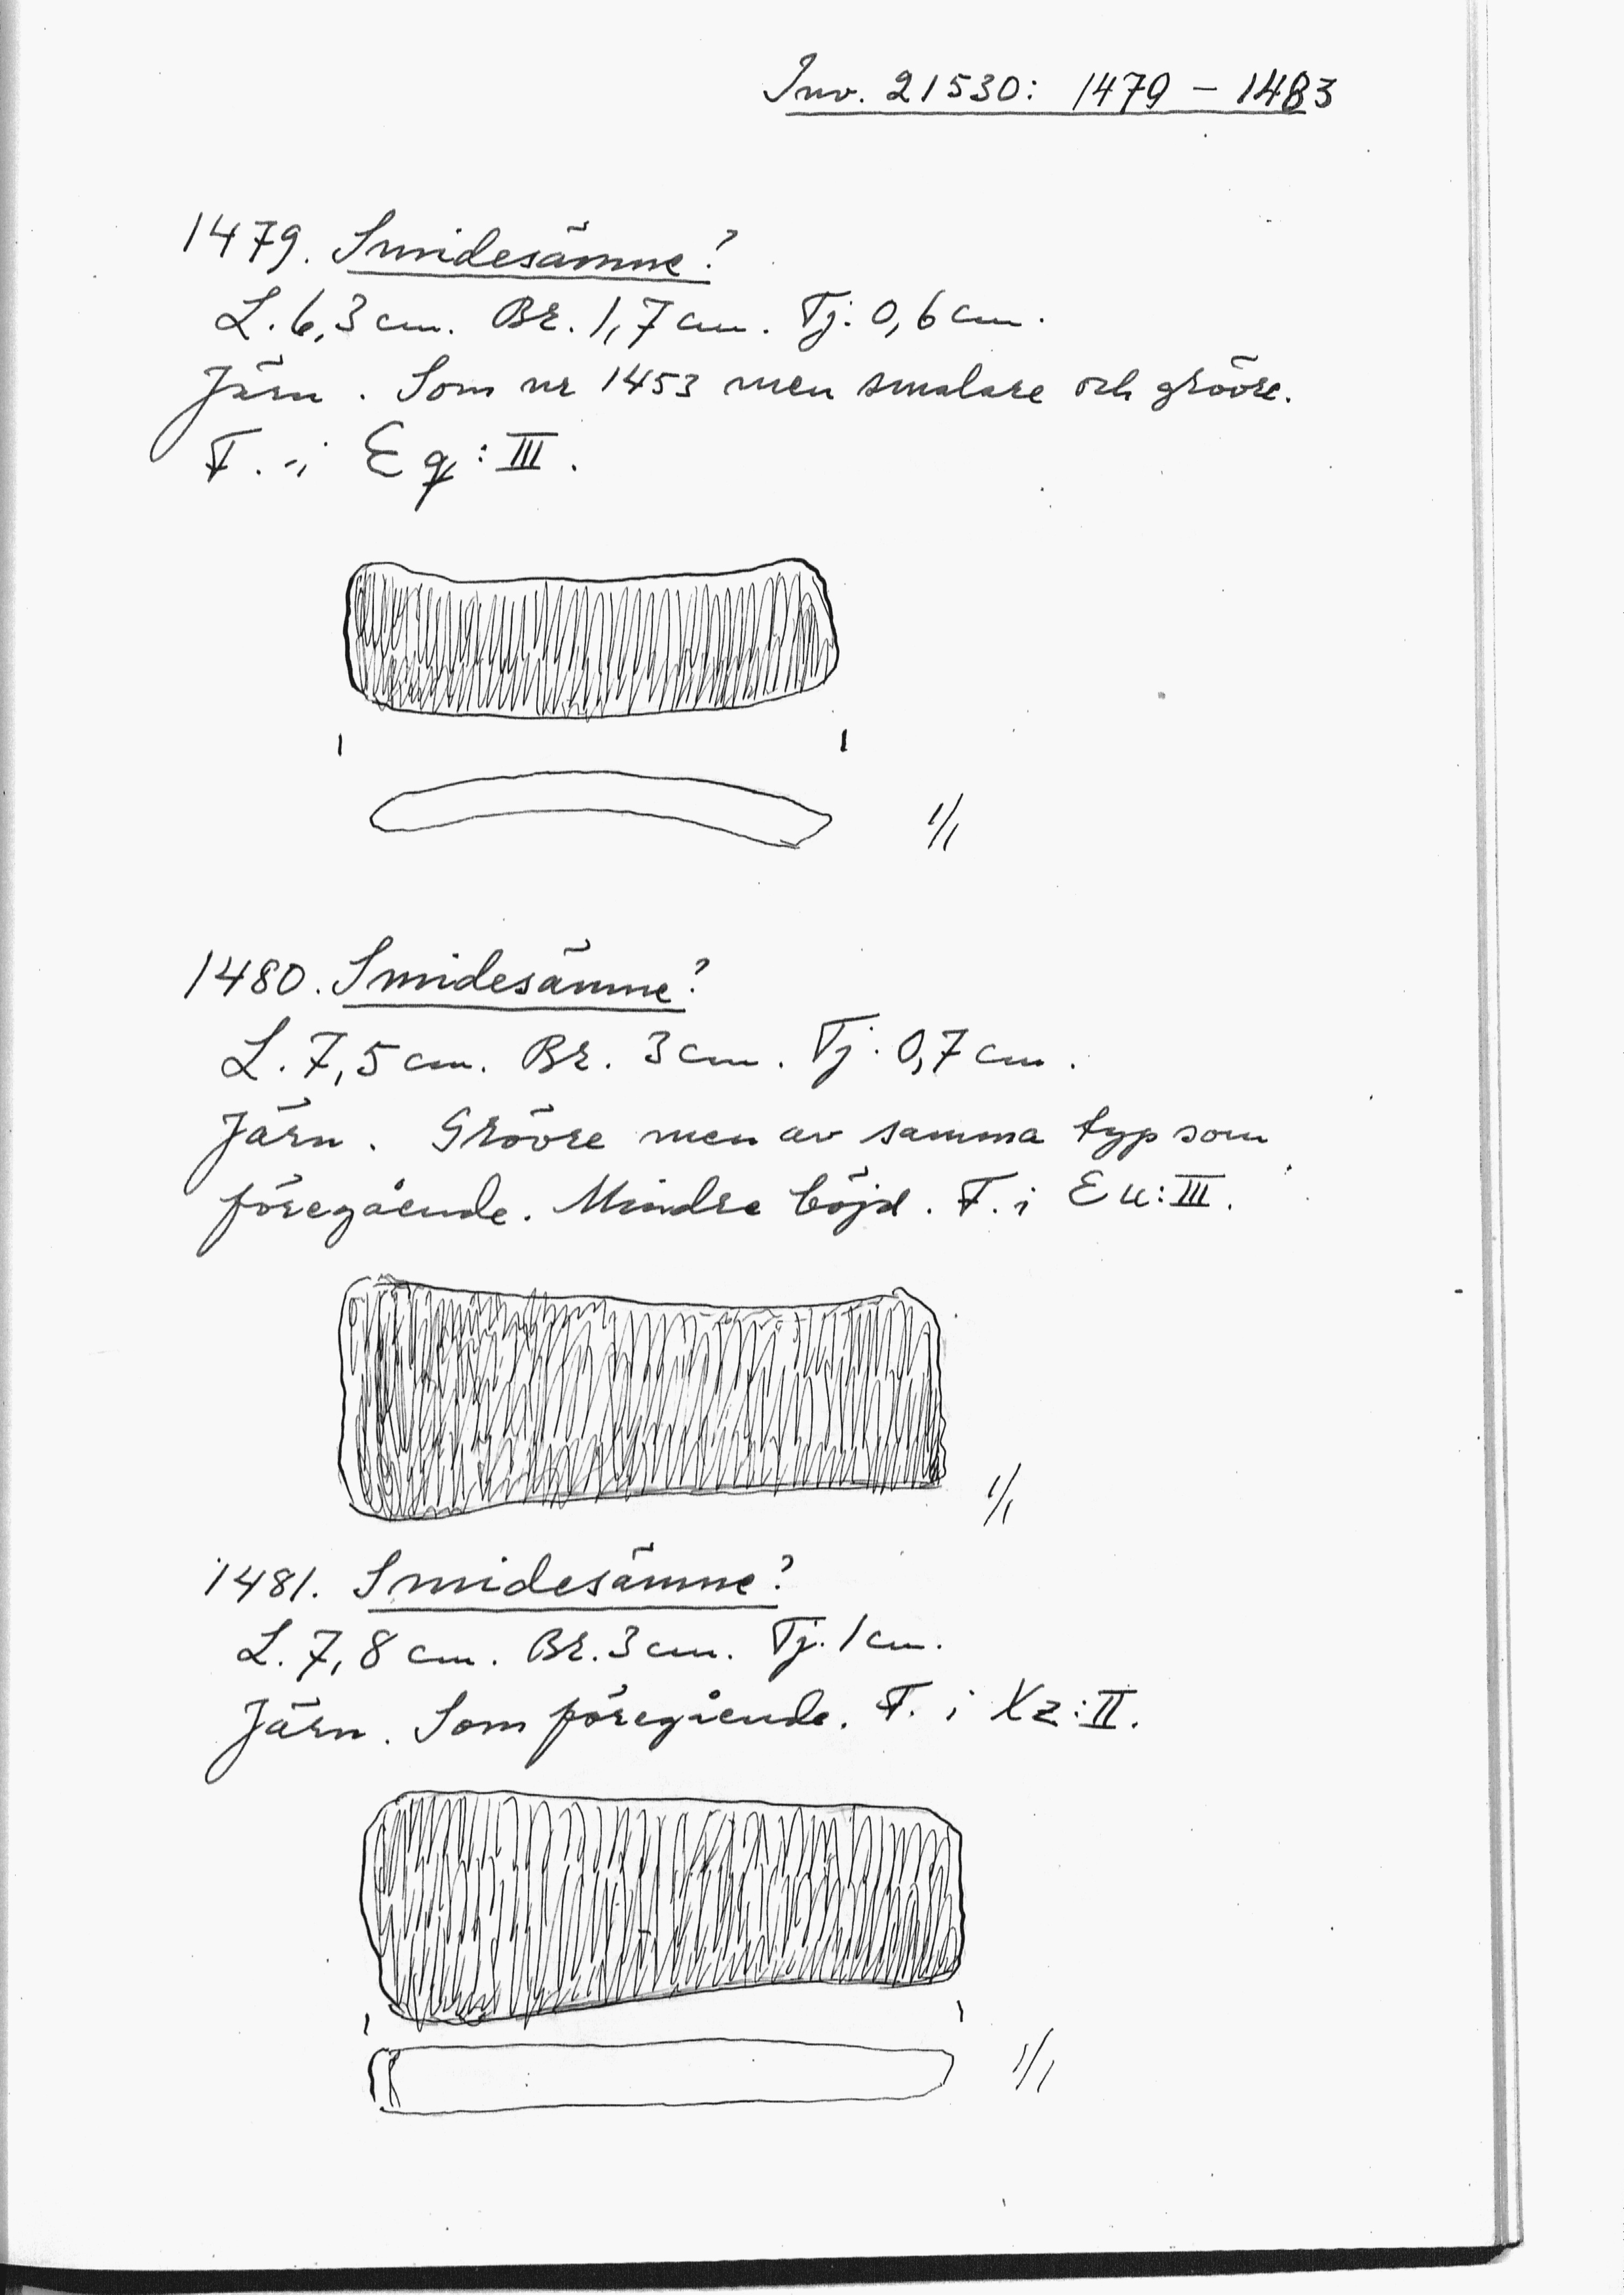 Inv. 21530: 1479 – 1483
1479. Smidesämne?
L. 6,3 cm. Br. 1,7 cm. Tj. 0,6 cm.
Järn. Som nr 1453 men smalare och grövre.
F. i Eq:III.
1/1
1480. Smidesämne?
L. 7,5 cm. Br. 3 cm. Tj. 0,7 cm.
Järn. Grövre men av samma typ som
föregående. Mindre böjd. F. i Eu:III.
1/1
1481. Smidesämne?
L. 7,8 cm. Br. 3 cm. Tj. 1 cm.
Järn. Som föregående. F. i Xz:II.
1/1